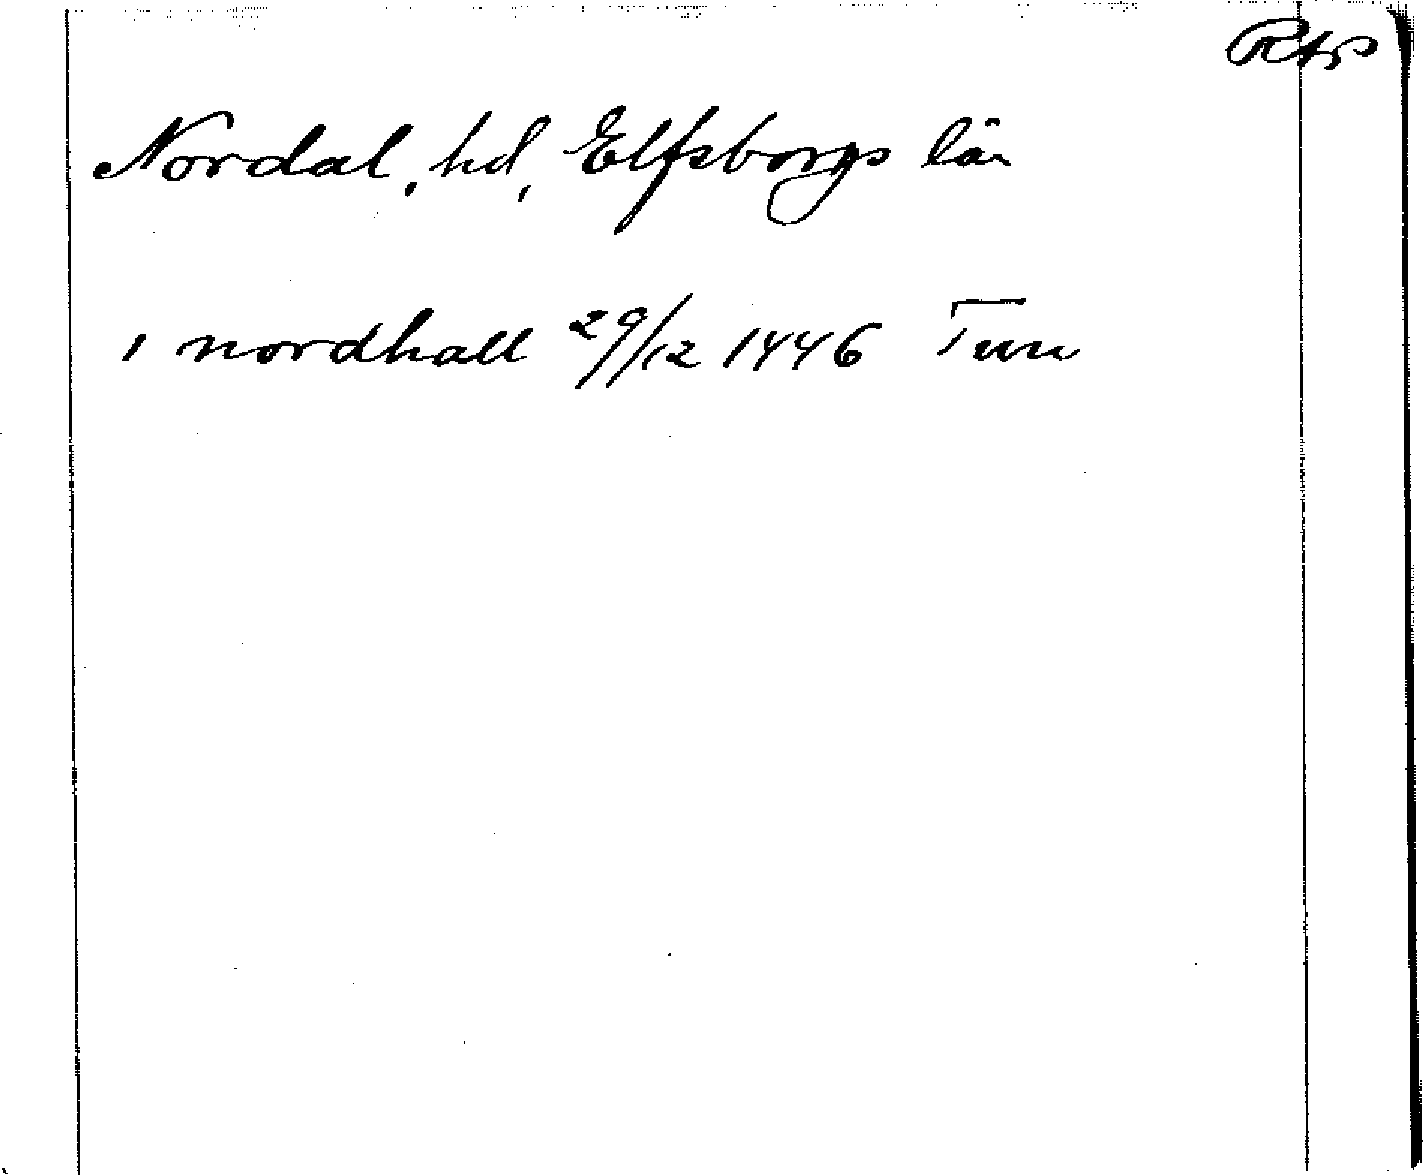 Rtp
Nordal, hd, Elfsborgs län
i nordhall 29/12 1446 Tun